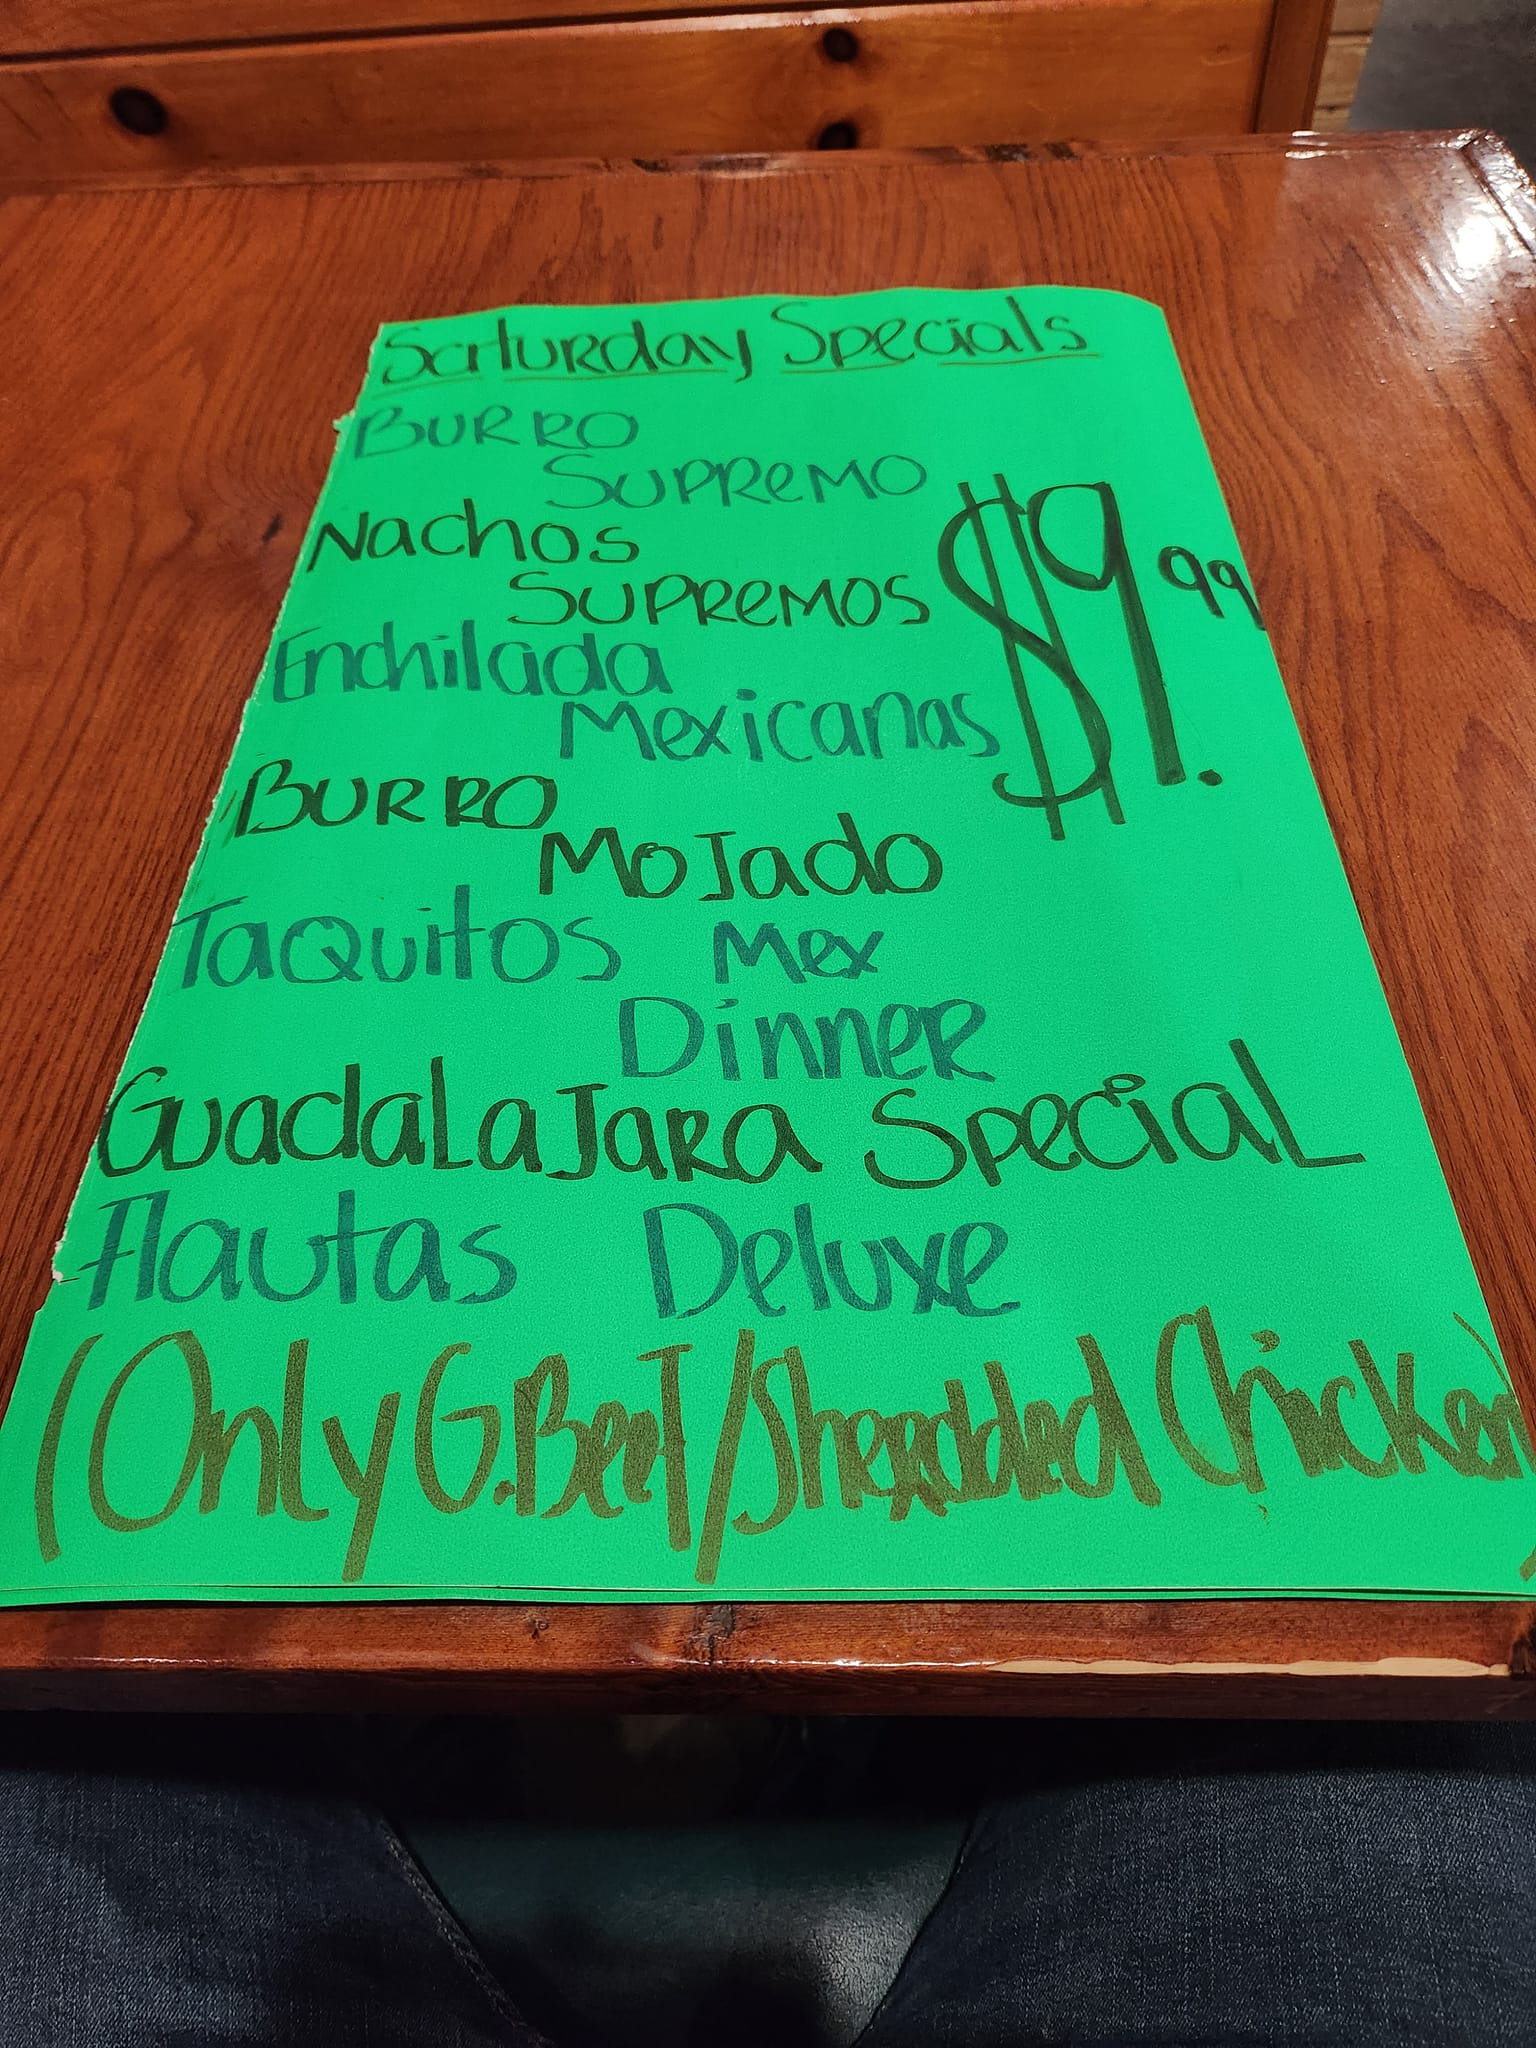 Saturday Specials
BURRO
SUPReMO
Nachos
SUPReMOS
$9.99
Enchilada
Mexicanas
BURRO
MoJado
TaQuitos Mex
DinneR
GuadaLaJaRa SpeciaL
Flautas Deluxe
(Only G.Beef/Shredded Chicken)